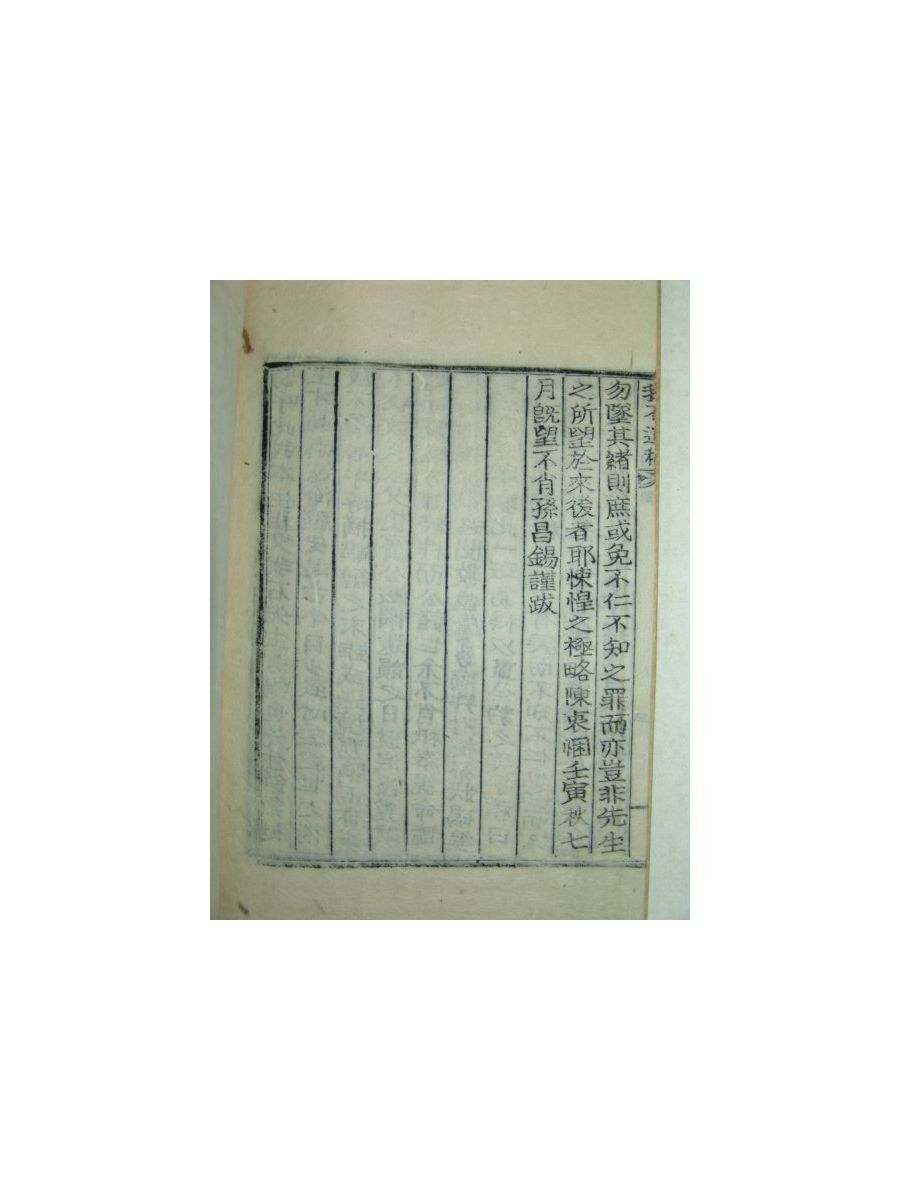 勿墜其緒則庶或免不仁不知之罪而亦豈非先生
之所望於來後者耶悚惶之極略陳衷悃壬寅秋七
月旣望不肖孫昌錫謹跋